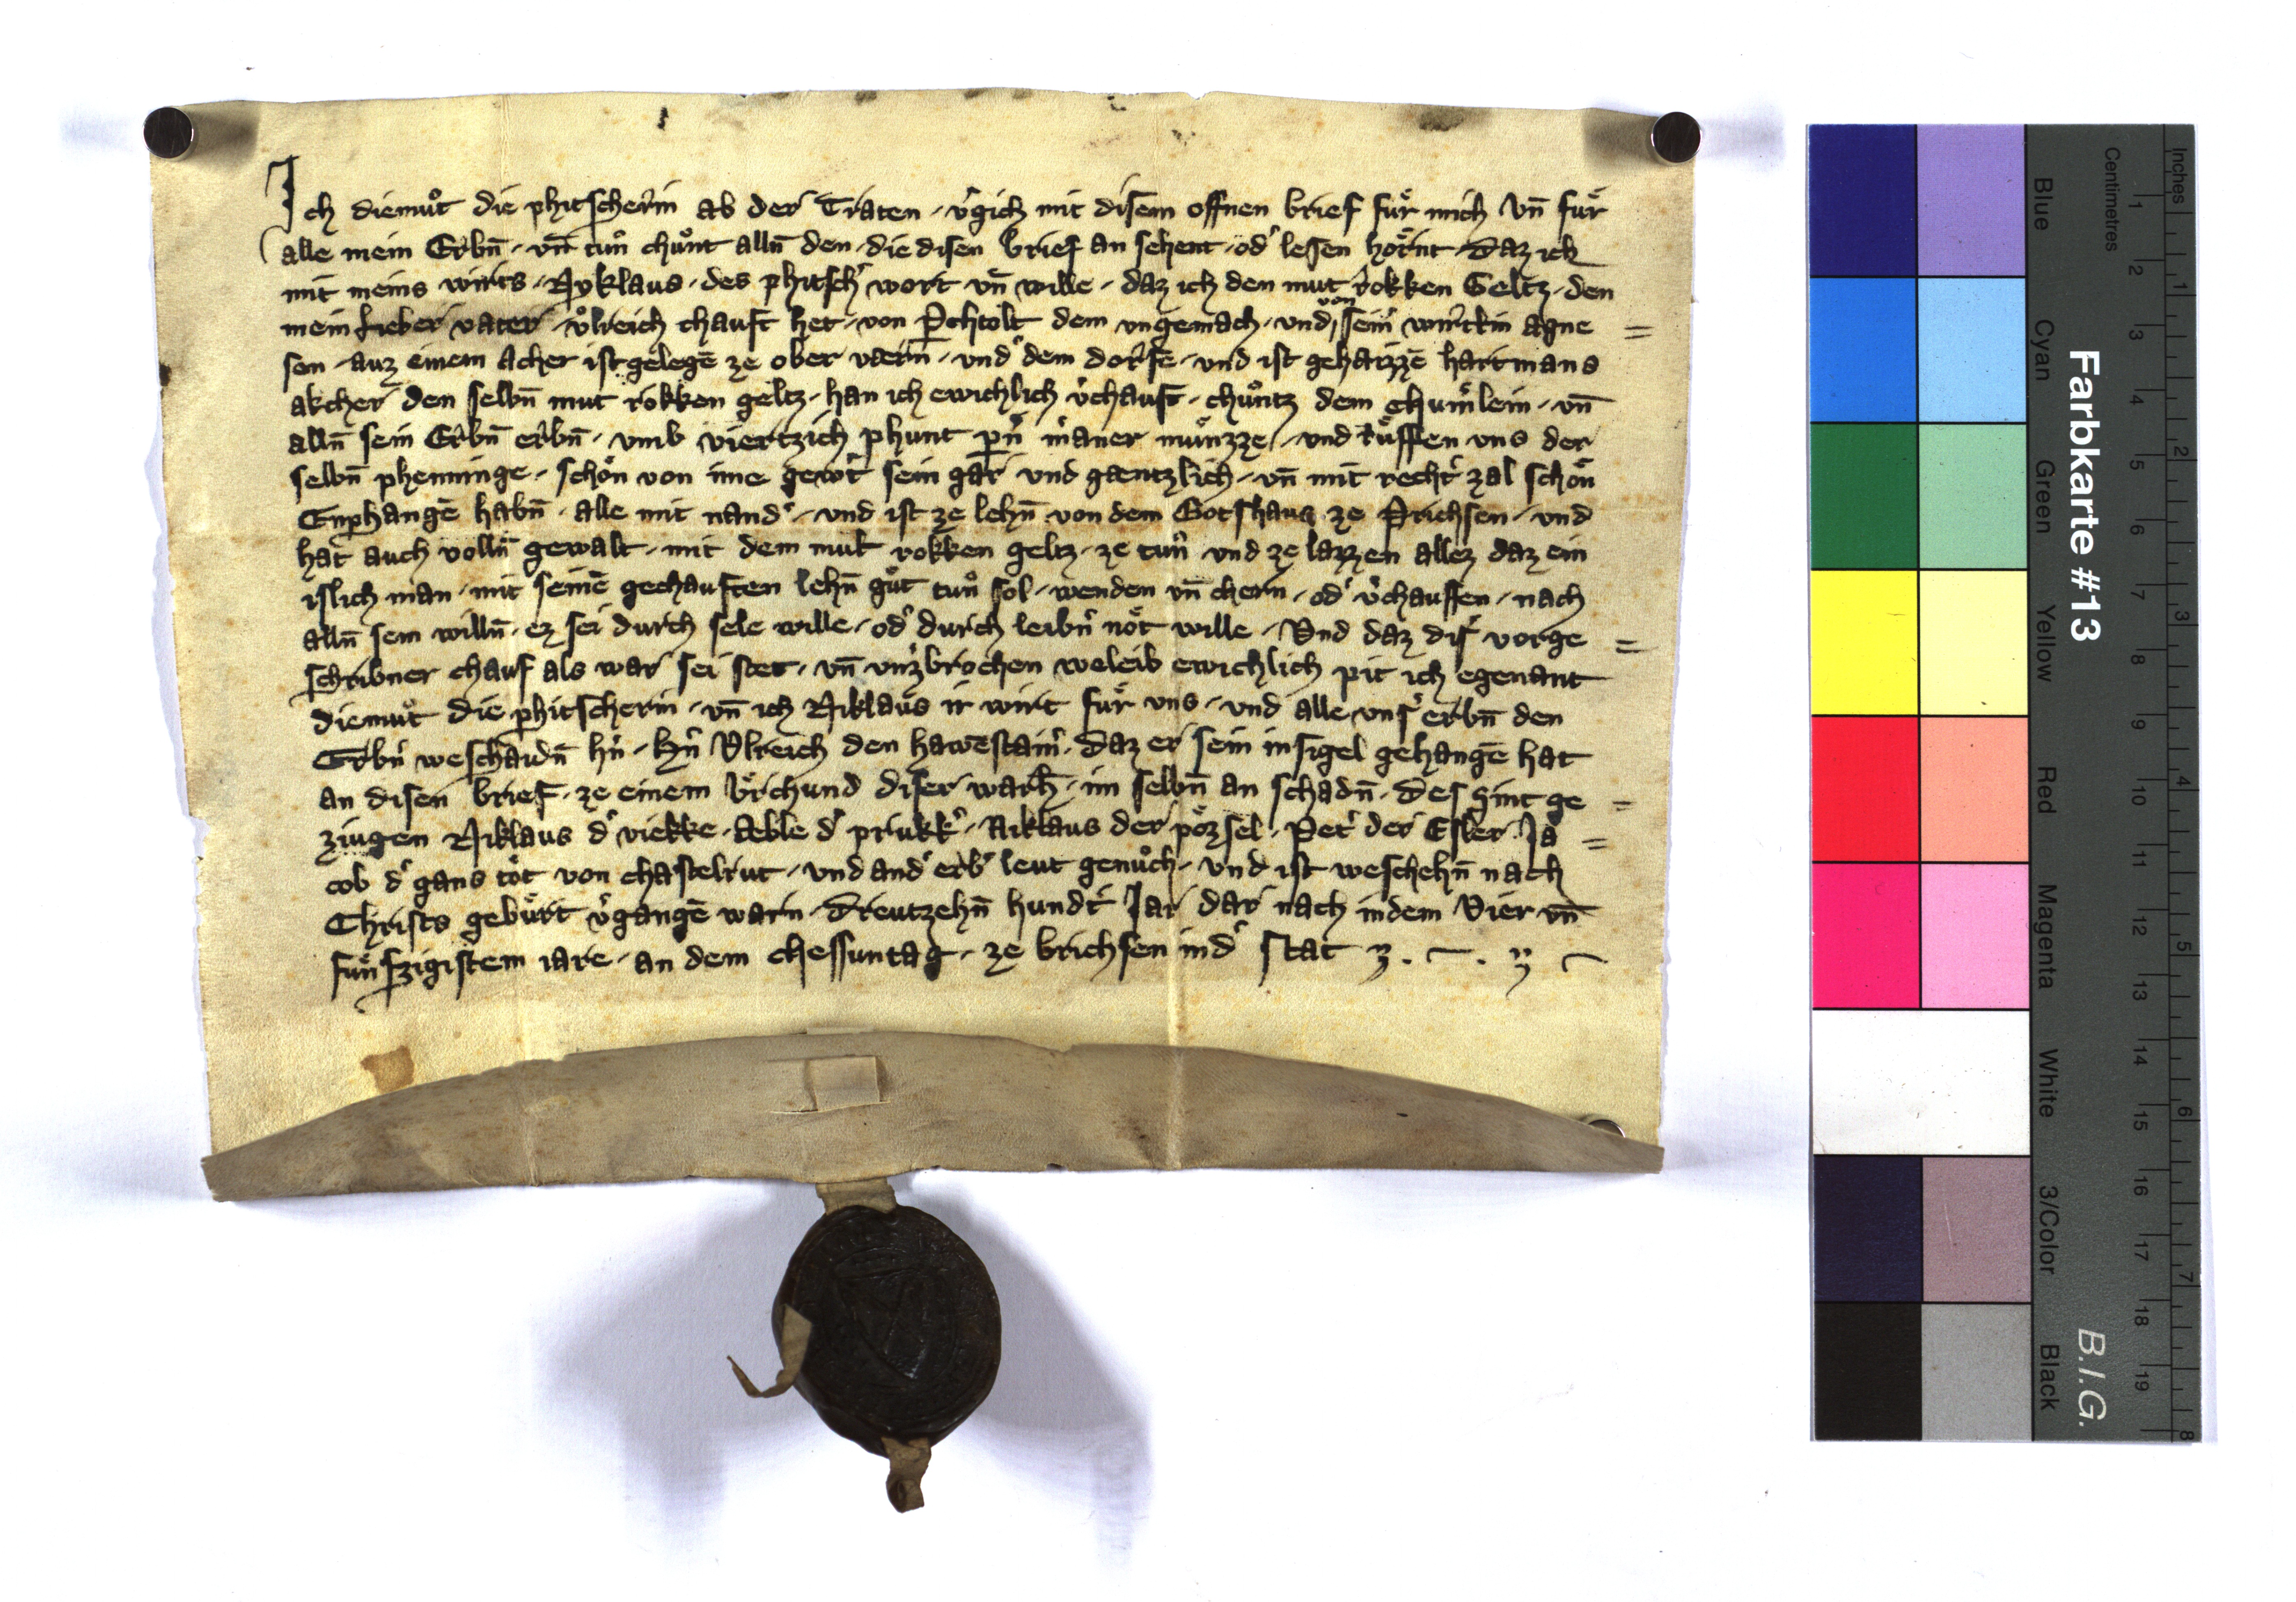 Ich diemuͦt die phitscherin ab der Traten · v͛gich mit disem offnen brief fuͤr mich vn̄ fuͤr
alle mein Erbn̄ · vn̄ tuͦn chuͦnt alln̄ den · die disen brief an sehent · od͛ lesen hoͤrnt · Daz ich
mit meins wirts · Nyklaus · des phitsch͛ wort vn̄ wille · daz ich den mut rokken Geltz · den
mein lieber vater · vͦlreich chauft het · von P̱chtolt dem vngemach · vnd von sein͛ wirttin Agne =
sen · auz einem Acher ist gelegē ze ober vaern̄ · vnd͛ dem dorfe · vnd ist gehaizzē hartmans
akcher den selbn̄ mut rokken geltz · han ich ewichlich v͛chauft · chuͦntz dem chuͤmlein · vn̄
alln̄ sein Erbn̄ erbn̄ · vmb viertzich phunt pn͛ m͛aner muͤnzze · vnd ruͤffen vns der
selbn̄ phenninge · schoͤn von ime gew͛t sein gar vnd gaentzlich · vn̄ mit recht͛ zal schoͤn
Enphangē habn̄ · alle mit nand͛ · vnd ist ze lehn̄ von dem Gotshaus ze Prichsen · vnd
hat auch volln̄ gewalt · mit dem mut rokken geltz · ze tuͦn vnd ze lazzen allez daz ein
islich man · mit seinē gechauften lehn̄ guͦt tuͦn sol · wenden vn̄ chern · od͛ v͛chauffen · nach
alln̄ sein willn̄ · ez sei durch sele wille · od͛ durch leibn͛ noͤt wille · Vnd daz dis͛ vorge =
schribner chauf als war sei stet · vn̄ vnz͛brochen weleib ewichlich pit ich egenant
diemuͦt die phitscherin · vn̄ ich Niklaus ir wirt fuͤr vns · vnd alle vns͛ erbn̄ den
Erbn͛weschaidn̄ hn͛ · hn͛ Vlreich den hawēstain͛ · daz er sein insigel gehangē hat
an disen brief · ze einem vͤrchund diser warh̄ · im selbn̄ an schadn̄ · des sint ge =
ziugen Niklaus d͛ viekke · Aeble d͛ priukk͛ · Niklaus der poͤzsel · Pet͛ der Esler · Ja =
cob d͛ gans toͤt von chastelrut · vnd and͛ erb͛ leut genuͦch · vnd ist weschehn̄ nach
Christs gebuͤrt v͛gangē warn · Dreutzehn̄ hundt͛ Jar dar nach in dem Vier vn̄
fuͤnfzigistem iare · an dem chessuntag · ze brichsen in d͛ stat
Farbkarte #13
B.I.G.
Blue
Cyan
Green
Yellow
Red
Magenta
White
3/Color
Black
Centimetres
1 2 3 4 5 6 7 8 9 10 11 12 13 14 15 16 17 18 19
Inches
1 2 3 4 5 6 7 8